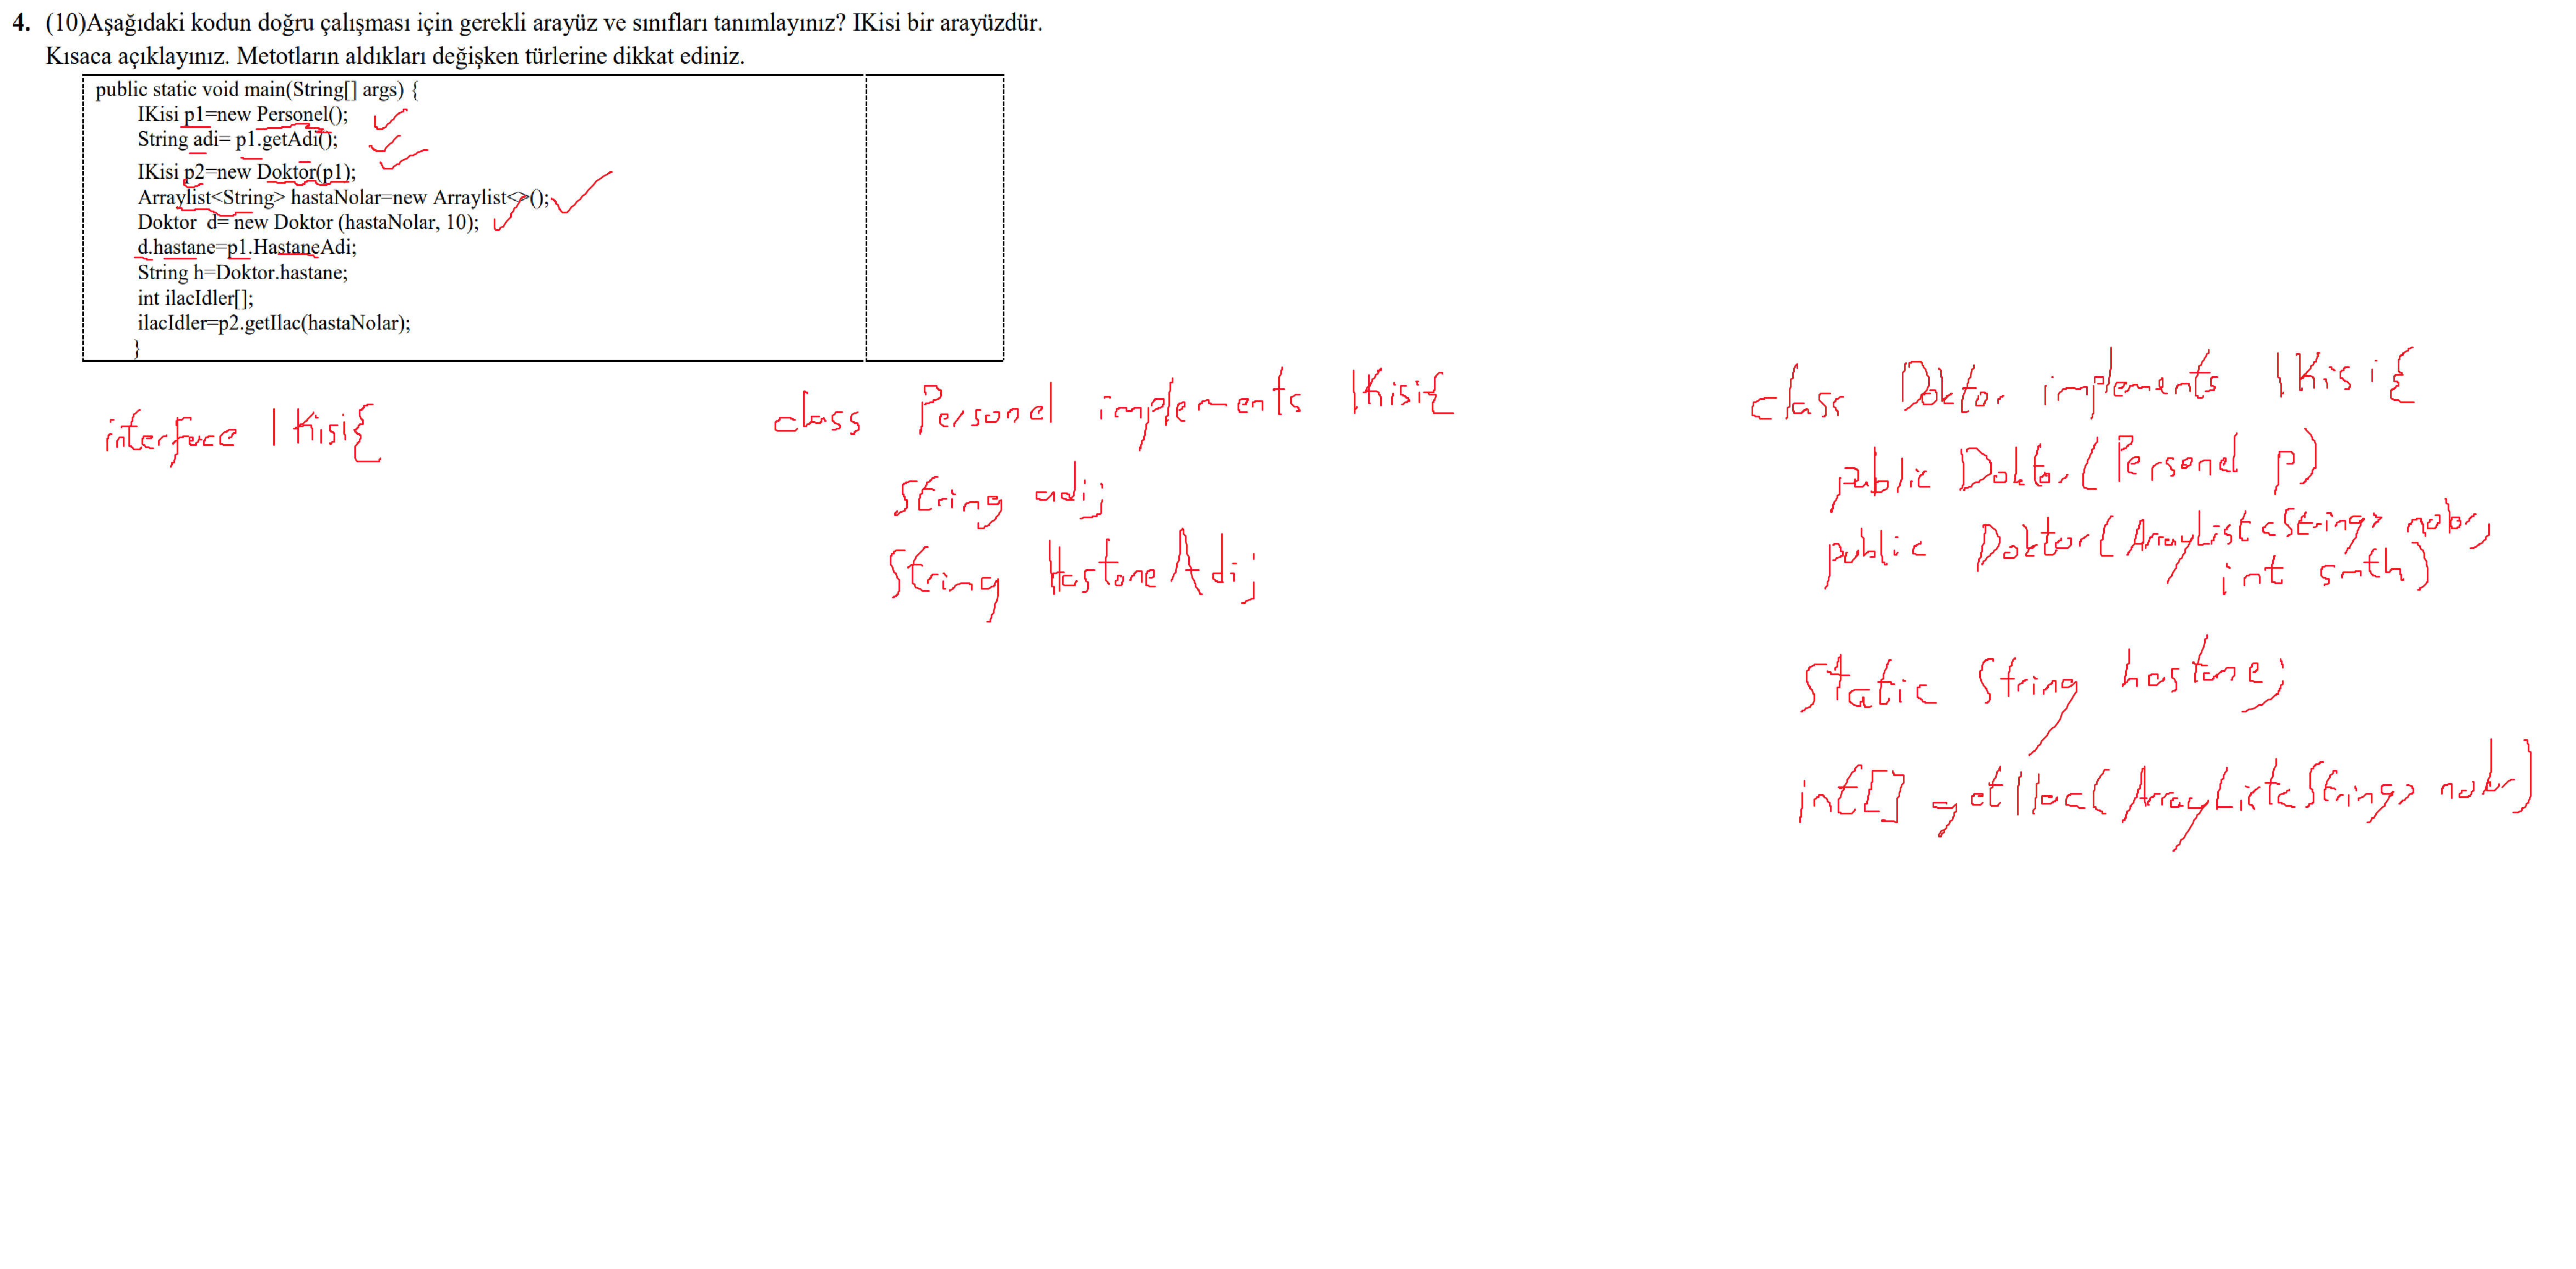 4. (10)Aşağıdaki kodun doğru çalışması için gerekli arayüz ve sınıfları tanımlayınız? IKisi bir arayüzdür.
Kısaca açıklayınız. Metotların aldıkları değişken türlerine dikkat ediniz.
public static void main(String[] args) {
IKisi p1=new Personel();
String adi= p1.getAdi();
IKisi p2=new Doktor(p1);
Arraylist<String> hastaNolar=new Arraylist<>();
Doktor d= new Doktor (hastaNolar, 10);
d.hastane=p1.HastaneAdi;
String h=Doktor.hastane;
int ilacIdler[];
ilacIdler=p2.getIlac(hastaNolar);
}
interface IKisi{
class Personel implements IKisi{
String adi;
String HastaneAdi;
class Doktor implements IKisi{
public Doktor(Personel p)
public Doktor(ArrayList<String> nolar,
int smth)
static String hastane;
int[] getIlac(ArrayList<String> nolar)